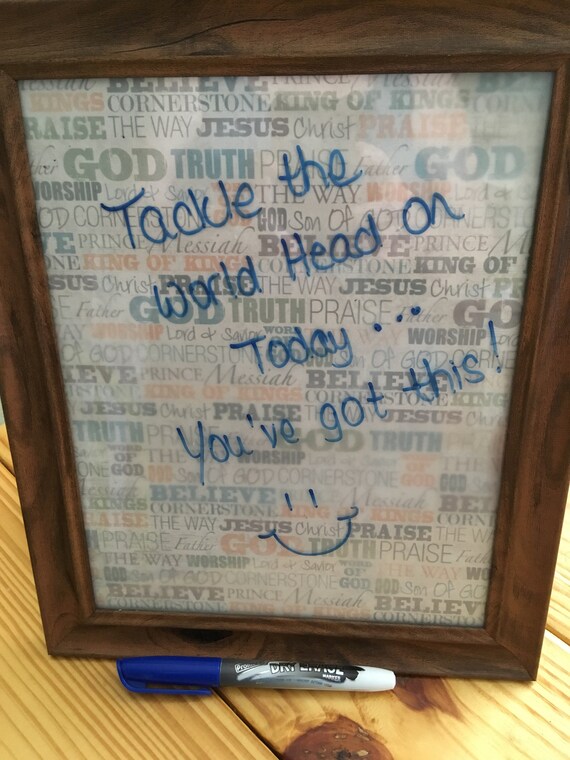 Messiah BELIEVE PRINCE Messiah
KINGS CORNERSTONE KING OF KINGS CORN
RAISE THE WAY JESUS Christ PRAISE
GOD TRUTH PRAISE Father GOD
WORSHIP Lord & Savior THE WAY WORSHIP Lord &
Tackle the
World Head on
Today...
You've got this!
GOD Son OF GOD
PRINCE Messiah PRINCE
KING OF
THE WAY JESUS Christ
Father TRUTH PRAISE GO
WORSHIP Lord & Savior WORSHIP
OF GOD CORNERSTONE
IEVE PRINCE Messiah BELIEVE
KING OF KINGS
JESUS Christ PRAISE JESUS
TRUTH GOD TRUTH
WORSHIP
ONE GOD GOD Son OF GOD CORNERSTONE GOD GOD
BELIEVE Messiah BE
KINGS CORNERSTONE KINGS CORN
AISE THE WAY JESUS Christ PRAISE THE WAY
PRAISE Father GOD TRUTH PRAISE
THE WAY WORSHIP Lord & Savior WORD OF GOD THE WAY WO
GOD Son OF GOD CORNERSTONE GOD Son OF GO
BELIEVE PRINCE Messiah BELIEV
CORNERSTONE CORNERSTONE
DRY ERASE
MARKER